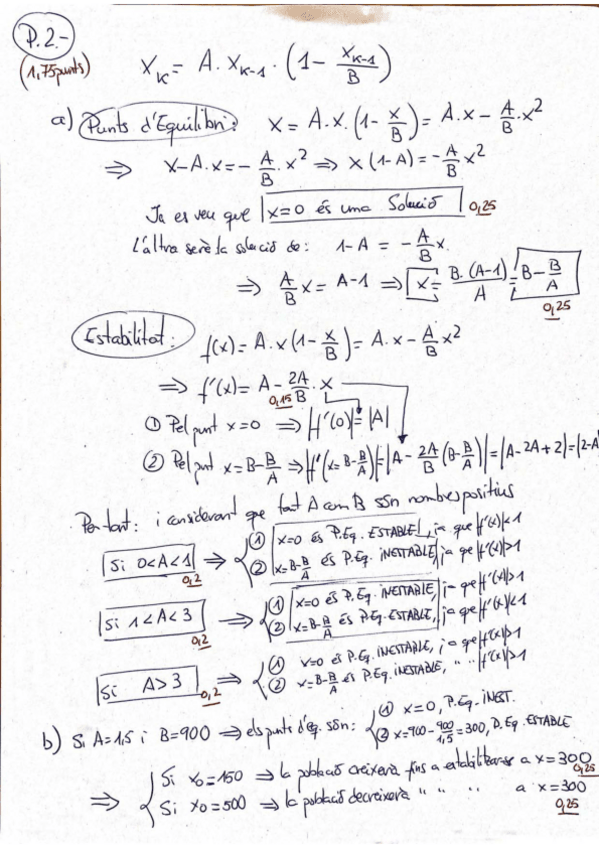 P.2.-
(1,75 punts)
X_K = A · X_{K-1} · (1 - X_{K-1}/B)
a) Punts d'Equilibri: X = A·X·(1 - X/B) = A·X - A/B·X²
⇒ X - A·X = - A/B·X² ⇒ X(1-A) = - A/B X²
Ja es veu que x=0 és una Solució 0,25
L'altra serà la solució de: 1-A = - A/B X.
⇒ A/B X = A-1 ⇒ X = B·(A-1)/A = B - B/A
0,25
Estabilitat: f(x) = A·X(1 - X/B) = A·X - A/B X²
⇒ f'(x) = A - 2A/B · X
0,15
① Pel punt x=0 ⇒ |f'(0)| = |A|
② Pel punt x = B - B/A ⇒ |f'(x = B - B/A)| = |A - 2A/B (B - B/A)| = |A - 2A + 2| = |2-A|
Per tant: i considerant que tant A com B són nombres positius
Si 0<A<1 ⇒ { ① x=0 és P.Eq. ESTABLE, ja que |f'(x)|<1
0,2 ② x=B-B/A és P.Eq. INESTABLE, ja que |f'(x)|>1
Si 1<A<3 ⇒ { ① x=0 és P.Eq. INESTABLE, ja que |f'(x)|>1
0,2 ② x=B-B/A és P.Eq. ESTABLE, ja que |f'(x)|<1
Si A>3 ⇒ { ① x=0 és P.Eq. INESTABLE, ja que |f'(x)|>1
0,2 ② x=B-B/A és P.Eq. INESTABLE, " " |f'(x)|>1
b) Si A=1,5 i B=900 ⇒ els punts d'eq. són: { ① x=0, P.Eq. INEST.
② x=900 - 900/1,5 = 300, P.Eq. ESTABLE
⇒ { Si x₀=150 ⇒ la població creixerà fins a estabilitzar-se a x=300
0,25
Si x₀=500 ⇒ la població decreixerà " " " a x=300
0,25